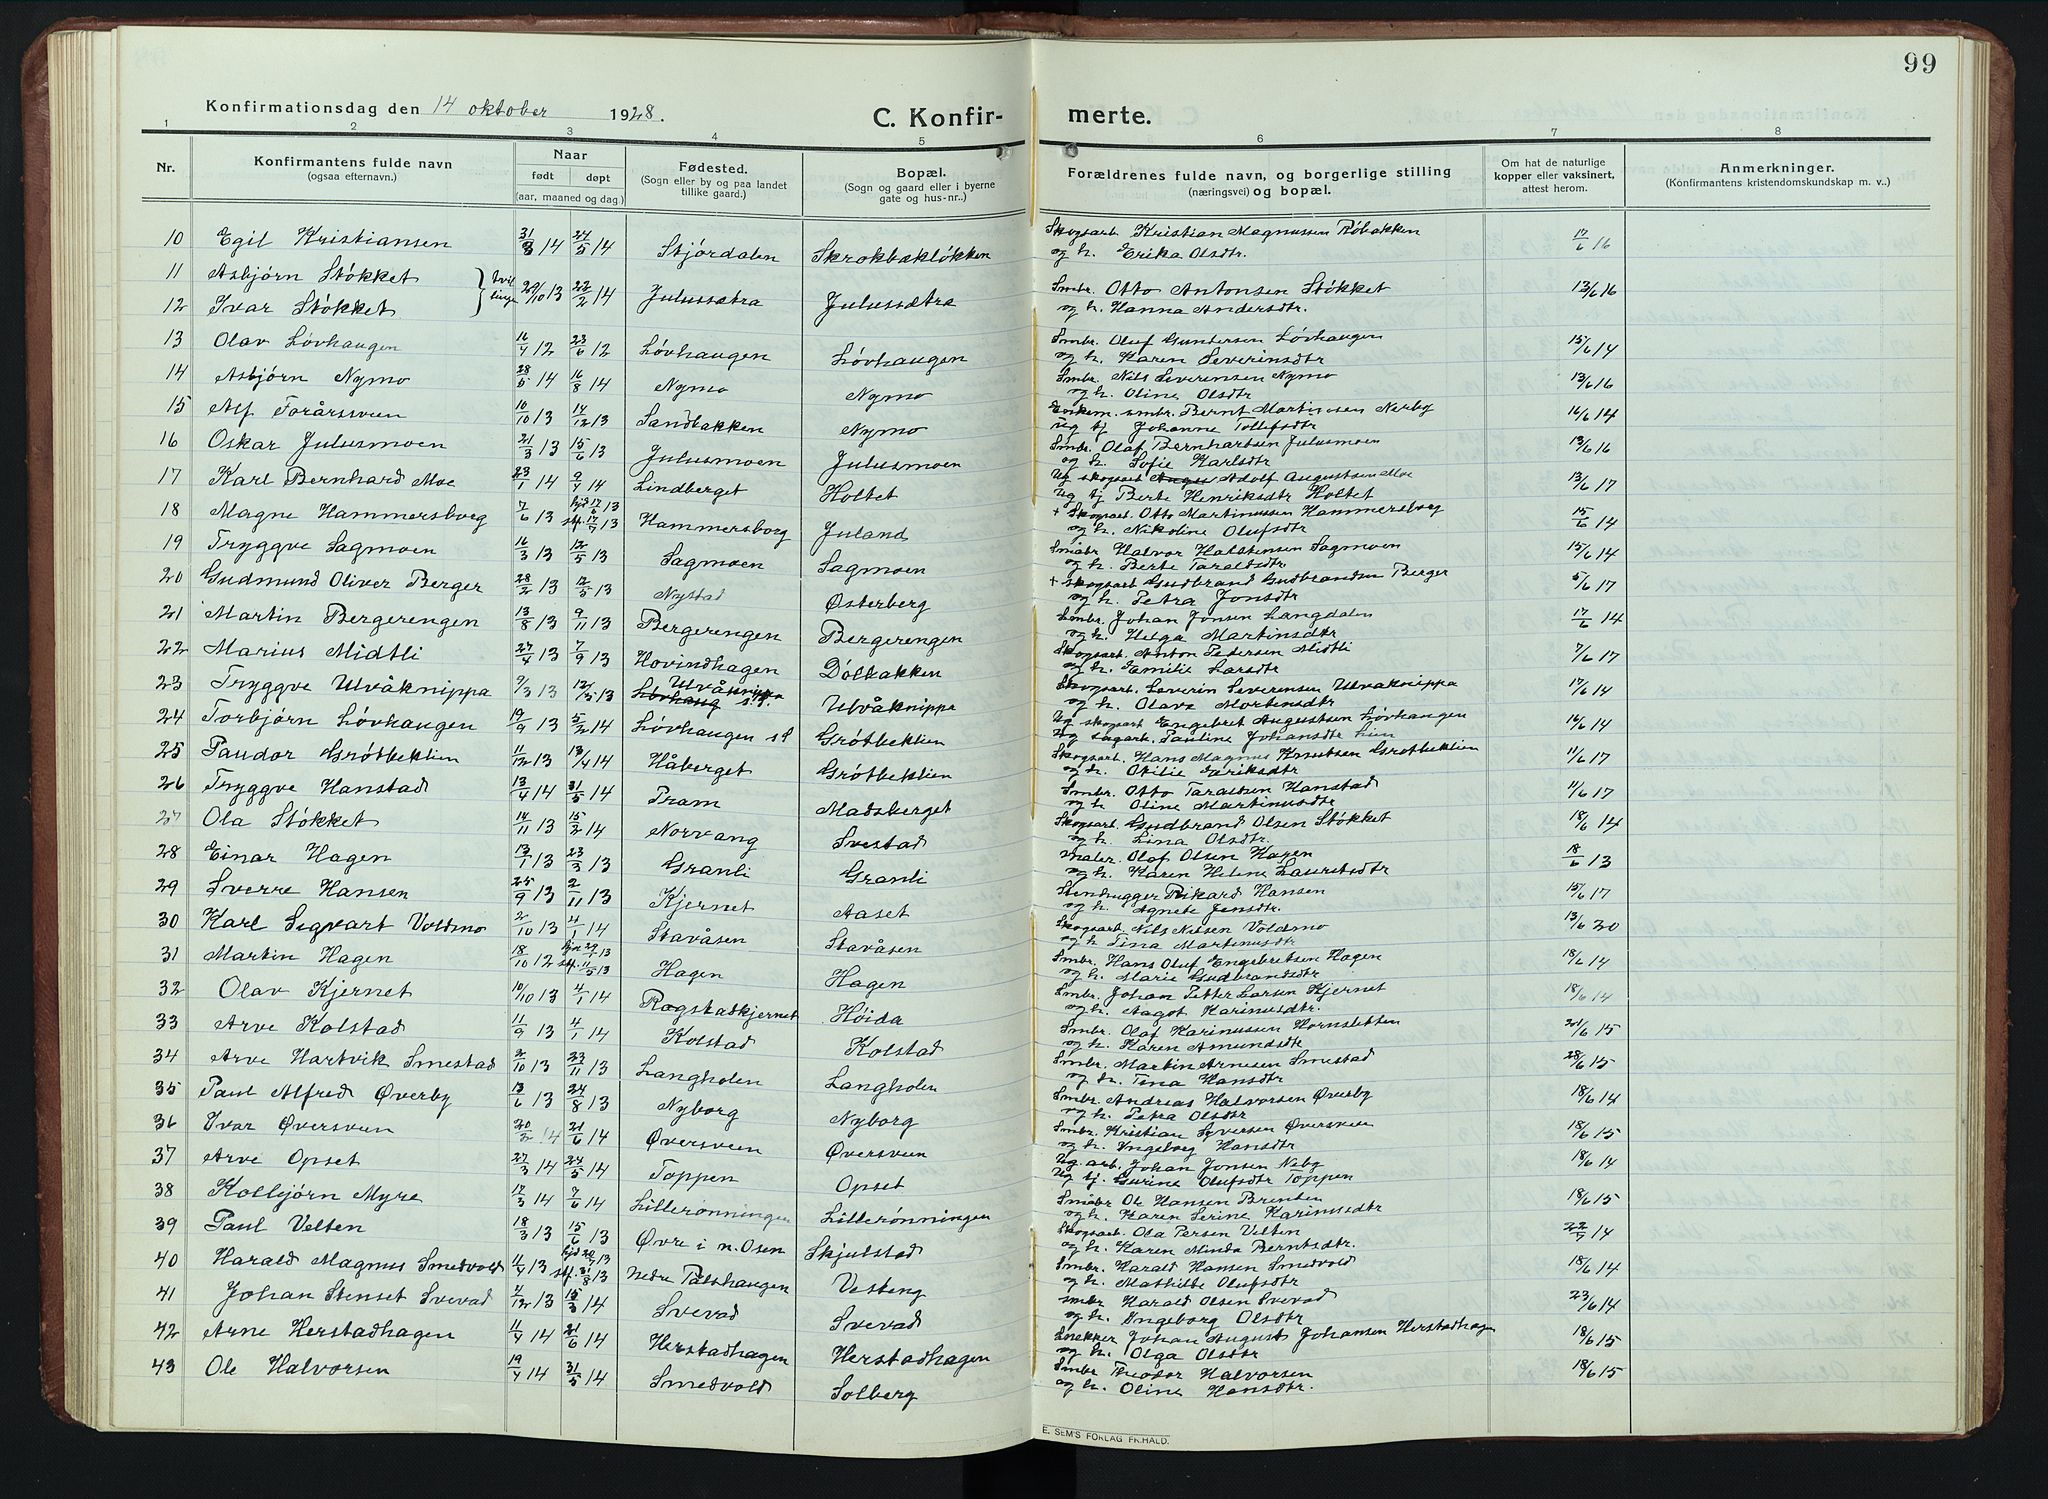 99
Konfirmationsdag den 14 oktober 1928.
C. Konfirmerte.
1 2 3 4 5 6 7 8
Nr. Konfirmantens fulde navn (ogsaa efternavn.) Naar født døpt (aar, maaned og dag.) Fødested. (Sogn eller by og paa landet tillike gaard.) Bopæl. (Sogn og gaard eller i byerne gate og hus-nr..) Forældrenes fulde navn, og borgerlige stilling (næringsvei) og bopæl. Om hat de naturlige kopper eller vaksinert, attest herom. Anmerkninger. (Konfirmantens kristendomskundskap m. v..)
10 Egil Kristiansen 31/3 14 24/5 14 Stjørdalen Skrokbækløkken Skogsarb. Kristian Magnussen Røbakken 17/6 16
og h. Erika Olsdtr.
11 Asbjørn Støkket } tvillinger 29/10 13 22/2 14 Julussætra Julussætra Smbr. Otto Antonsen Støkket 13/6 16
12 Ivar Støkket og h. Hanna Andersdtr.
13 Olav Løvhaugen 16/4 12 23/6 12 Løvhaugen Løvhaugen Smbr. Oluf Guntersen Løvhaugen 15/6 14
og h. Karen Severinsdtr
14 Asbjørn Nymo 28/5 14 16/8 14 Nymo Nymo Smbr. Nils Severensen Nymo 13/6 16
og h. Oline Olsdtr
15 Alf Forårsveen 10/10 13 14/12 13 Sandbakken Nymo Enkem. smbr. Bernt Martinusen Nerby 16/6 14
ug tj Johanne Tollefsdtr
16 Oskar Julusmoen 21/3 13 15/6 13 Julusmoen Julusmoen Smbr. Olaf Bernhartsen Julusmoen 13/6 16
og h. Sofie Karlsdtr
17 Karl Bernhard Moe 23/1 14 9/4 14 Lindberget Holtet Ug skogsarb Adolf Augustsen Moe 13/6 17
Ug tj Berte Henriksdtr Holtet
18 Magne Hammersborg 7/6 13 hjd 17/6 13 stf. 17/7 13 Hammersborg Juland + Skogsarb. Otto Martinussen Hammersborg 15/6 14
og h. Nikoline Olufsdtr
19 Tryggve Sagmoen 16/3 13 12/5 13 Sagmoen Sagmoen Småbr Halvor Halstensen Sagmoen 15/6 14
og h. Berte Taraldsdtr
20 Gudmund Oliver Berger 28/2 13 12/5 13 Nystad Østerberg + skogsarb Gudbrand Gudbrandsen Berger 5/6 17
og h. Petra Jonsdtr
21 Martin Bergerengen 13/8 13 9/11 13 Bergerengen Bergerengen Smbr. Johan Jonsen Langdalen 17/6 14
og h. Helga Martinsdtr
22 Marius Midtli 27/4 13 7/9 13 Hovindhagen Dølbakken Skogsarb. Anton Pedersen Midtli 7/6 17
og h. Emilie Larsdtr
23 Tryggve Ulvåknippa 9/3 13 12/5 13 Ulvåknippa Løvhaug s.s. Ulvåknippa Skogsarb. Severin Severinsen Ulvåknippa 17/6 14
og h. Olava Mortensdtr
24 Torbjørn Løvhaugen 19/9 13 5/2 14 Løvhaugen s S Grøtbeklien Ug skogsarb Engebret Augustsen Løvhaugen 16/6 14
Ug sagarb. Pauline Johansdtr
25 Paudor Grøtbeklien 11/12 13 13/4 14 Håberget Grøtbeklien Skogsarb. Hans Magnus Knutsen Grøtbeklien 11/6 17
og h. Otilie Eriksdtr
26 Tryggve Hanstad 13/4 14 31/5 14 Fram Madsberget Smbr. Otto Taraldsen Hanstad 11/6 17
og h. Oline Martinusdtr
27 Ola Støkket 14/11 13 15/2 14 Norvang Svestad Skogsarb. Gudbrand Olsen Støkket 18/6 14
og h. Lina Olsdtr.
28 Einar Hagen 13/1 13 23/3 13 Granli Granli Maler. Olaf Olsen Hagen 18/6 13
og h. Karen Helene Lauretsdtr
29 Sverre Hansen 25/9 13 2/11 13 Kjernet Aaset Stenhugger Rikard Hansen 15/6 17
og h. Agnete Jensdtr.
30 Karl Sigvart Voldmo 2/10 13 4/1 14 Stavåsen Stavåsen Skogsarb Nils Nilsen Voldmo 13/6 20
og h. Tina Martinusdtr
31 Martin Hagen 18/10 12 hjd 29/1 13 stf. 11/5 13 Hagen Hagen Smbr. Hans Oluf Engebretsen Hagen 18/6 14
og h. Marie Gudbrandsdtr
32 Olav Kjernet 10/10 13 4/1 14 Rogstadkjernet Høida Smbr. Johan Petter Larsen Kjernet 18/6 14
og h. Aagot Karinusdtr.
33 Arve Kolstad 11/9 13 4/1 14 Kolstad Kolstad Smbr. Olaf Karinussen Hornsletten 21/6 15
og h. Karen Amundsdtr
34 Arve Hartvik Smestad 2/10 13 23/11 13 Langholen Langholen Smbr. Martin Arnesen Smestad 28/6 15
og h. Tina Hansdtr
35 Paul Alfred Øverby 13/6 13 24/8 13 Nyborg Nyborg Smbr. Andreas Halvorsen Øverby 18/6 14
og h. Petra Olsdtr
36 Ivar Øversveen 20/2 14 21/6 14 Øversveen Øversveen Smbr. Kristian Syversen Øversveen 18/6 15
og h. Ingeborg Hansdtr
37 Arve Opset 27/3 14 24/5 14 Toppen Opset Ug. arb. Johan Jonsen Neby 18/6 14
Ug tj. Gurine Olufsdtr Toppen
38 Kolbjørn Myre 17/3 14 7/6 14 Lillerønningen Lillerønningen Småbr Ole Hansen Brenden 18/6 15
og h. Karen Serine Karinusdtr
39 Paul Velten 18/3 13 15/6 13 Øvre i n. Osen Skjulstad Skogsarb. Ola Persen Velten 22/5 14
og h. Karen Minda Berntsdtr.
40 Harald Magnus Smedvold 11/4 13 hjd 20/7 13 stf. 31/8 13 Nedre Pålshaugen Vesteng Smbr. Harald Hansen Smedvold 18/6 14
og h. Mathilde Olufsdtr
41 Johan Stenset Svevad 4/12 13 15/3 14 Svevad Svevad smbr Harald Olsen Svevad 23/6 14
og h. Ingeborg Olsdtr
42 Arne Herstadhagen 11/4 14 21/6 14 Herstadhagen Herstadhagen Snekker Johan August Johansen Herstadhagen 18/6 15
og h. Olga Olsdtr
43 Ole Halvorsen 19/4 14 31/5 14 Smedvold Solberg Smbr Theodor Halvorsen 18/6 15
og h. Oline Hansdtr.
E. SEM'S FORLAG FR.HALD.